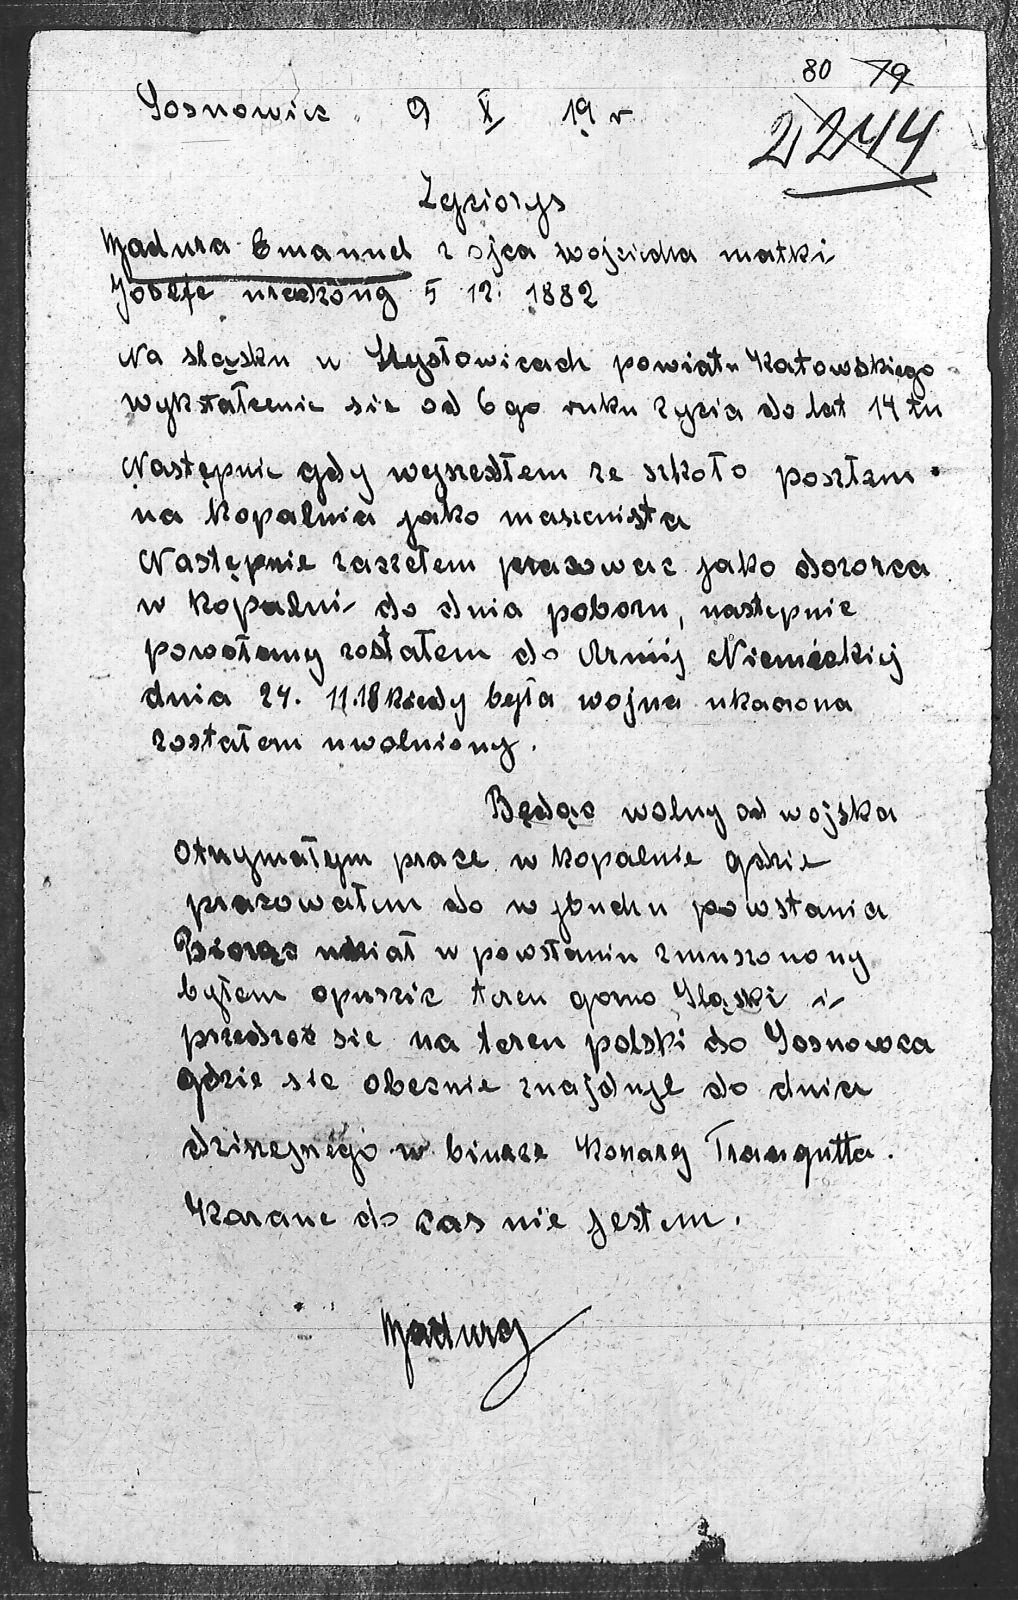 80 79
Sosnowice 9 X 19 r
2244
Zyciorys
Madura Emanuel z ojca wojciecha matki
Jozefe urodzony 5 12. 1882
Na sląsku w Mysłowicach powiatu Katowskiego
wykstałcenie sie od 6 go ruku zycia do lat 14 tu
Następnie gdy wyszedłem ze szkoło poszłem
na kopalnia jako maszenista
Następnie zaszełem pracowac jako dozorca
w kopalni do dnia poboru, nastepnie
powołamy zostałem do Armij Niemieckiej
dnia 24. 11.18 kiedy była wojna ukaczona
zostałem uwolniony.
Będąc wolny od wojska
otrzymałym prace w kopalnie gdzie
pracowałem do wybuchu powstania
Biorąc udział w powstaniu zmuszonony
byłem opuszic teren gorno Sląski i
przedrzec sie na teren polski do Sosnowca
gdzie sie obecnie znajduje do dnia
dzisiejnego w biurze Konary Traugutta.
Karane do cas nie jestem.
Madura